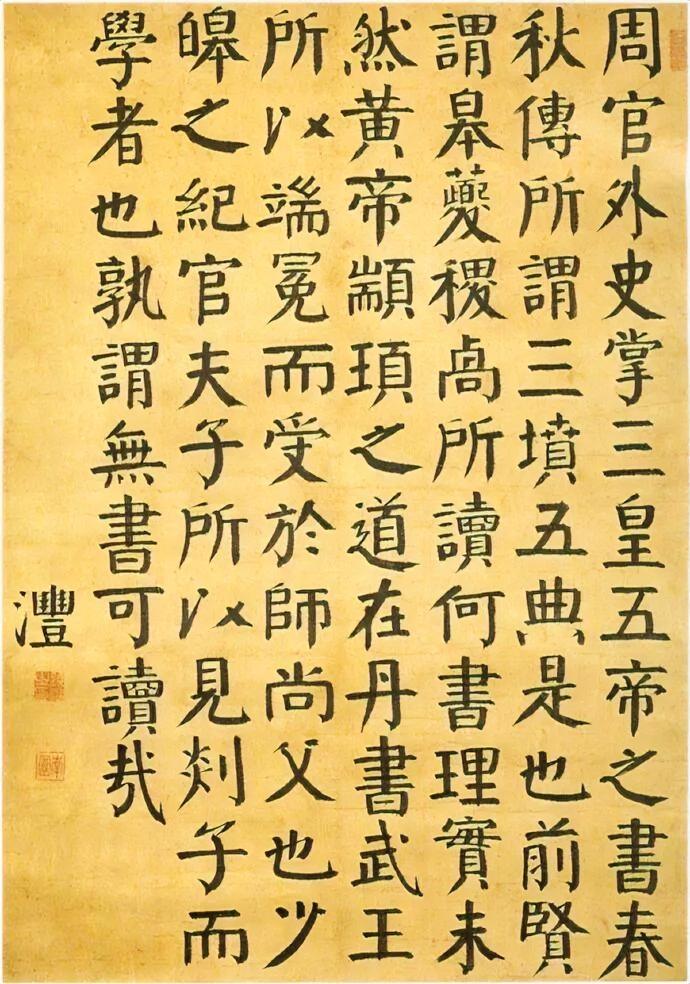 周官外史掌三皇五帝之書春
秋傳所謂三墳五典是也前賢
謂皋夔稷卨所讀何書理實未
然黄帝顓頊之道在丹書武王
所以端冕而受於師尚父也少
皞之紀官夫子所以見剡子而
學者也孰謂無書可讀哉
灃